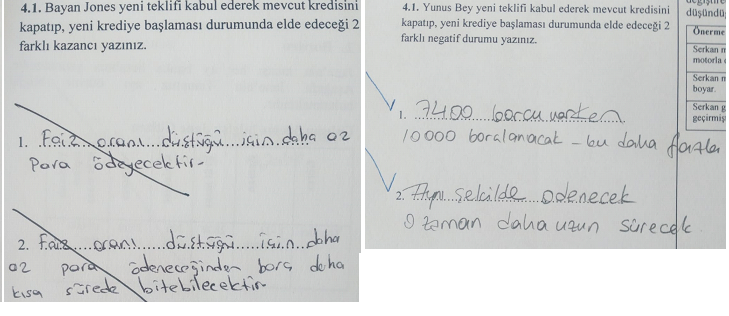 4.1. Bayan Jones yeni teklifi kabul ederek mevcut kredisini
kapatıp, yeni krediye başlaması durumunda elde edeceği 2
farklı kazancı yazınız.
1. Faiz oranı düştüğü için daha az
Para ödeyecektir.
2. Faiz oranı düştüğü için daha
az para ödeneceğinden borç daha
kısa sürede bitebilecektir.
4.1. Yunus Bey yeni teklifi kabul ederek mevcut kredisini
kapatıp, yeni krediye başlaması durumunda elde edeceği 2
farklı negatif durumu yazınız.
1. 7400 borcu varken
10000 borçlanacak - bu daha fazla
2. Aynı şekilde ödenecek
O zaman daha uzun sürecek
düşündü
Önerme
Serkan m
motorla
Serkan m
boyar.
Serkan g
geçirmiş